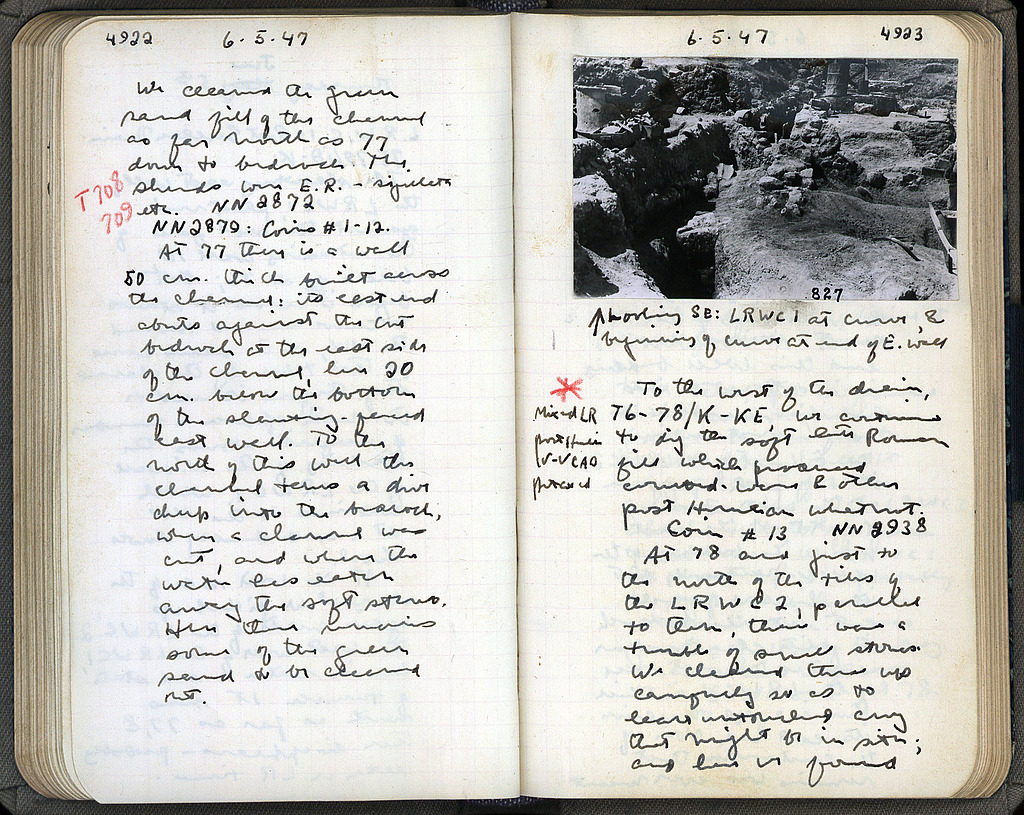 4922
6.5.47
We cleaned the green
sand fill of the channel
as far north as 77
down to bedrock. The
sherds were E.R. - sigillata
etc. NN 2872
T 708
709
NN 2879: Coins #1-12.
At 77 there is a wall
50 cm. thick built across
the channel: its east end
abuts against the cut
bedrock at the east side
of the channel, here 20
cm. below the bottom
of the slanting-
east wall. To the
north of this wall the
channel turns a
deep into the bedrock,
where a channel was
cut, and where the
water has eaten
away the soft stereo.
Here there remains
some of the green
sand to be cleaned
out.
6.5.47
4923
827
Shooting SE: LRWC1 at curve, &
beginning of curve at end of E. wall
To the west of the drain,
76-78/K-KE, we continue
to dig the soft late Roman
fill which produced
combed ware & other
post Herulian whatnot.
Mixed LR
post Herulian
IV-V C AD
Coin #13 NN 2938
At 78 and just to
the north of the tiles of
the LRWC2, parallel
to them, there was a
tumble of small stones.
We cleaned these up
carefully so as to
leave untouched any
that might be in situ;
and here we found